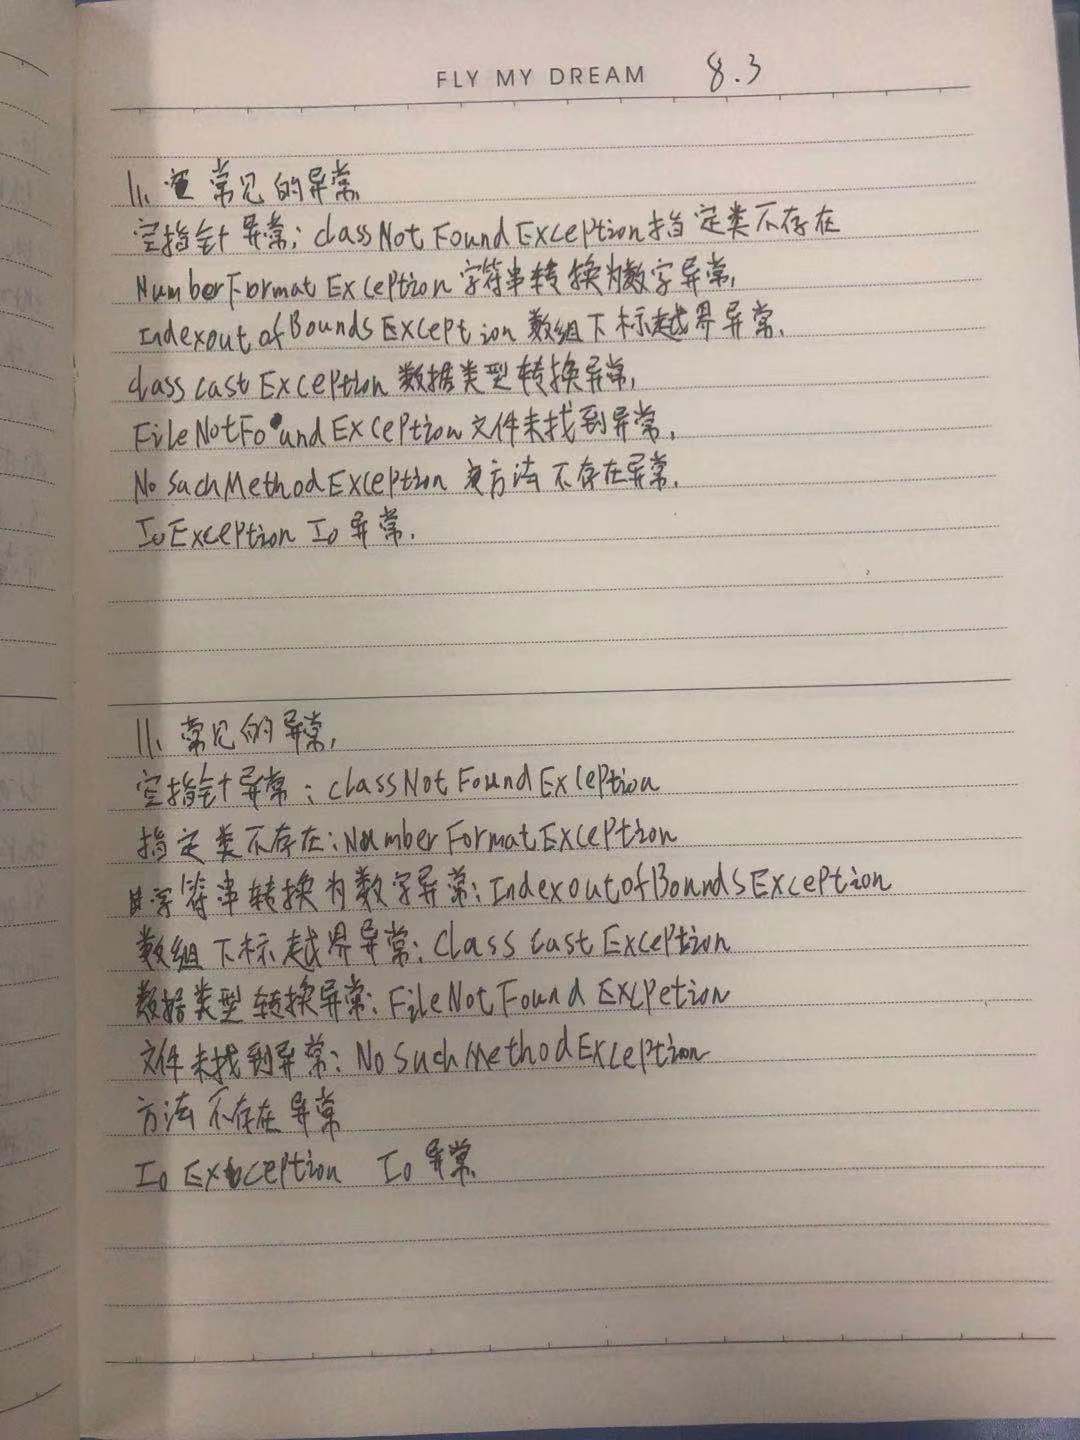 FLY MY DREAM 8.3
11、常见的异常
空指针异常：classNotFoundException指定类不存在
NumberFormatException字符串转换为数字异常,
IndexoutofBoundsException数组下标越界异常.
classcastException数据类型转换异常,
FileNotFoundException文件未找到异常.
NosuchMethodException方法不存在异常.
IoException Io异常.
11、常见的异常,
空指针异常：classNotFoundException
指定类不存在：NumberFormatException
字符串转换为数字异常：IndexoutofBoundsException
数组下标越界异常：classcastException
数据类型转换异常：FileNotFoundExcpetion
文件未找到异常：NosuchmethodException
方法不存在异常
IoException Io异常